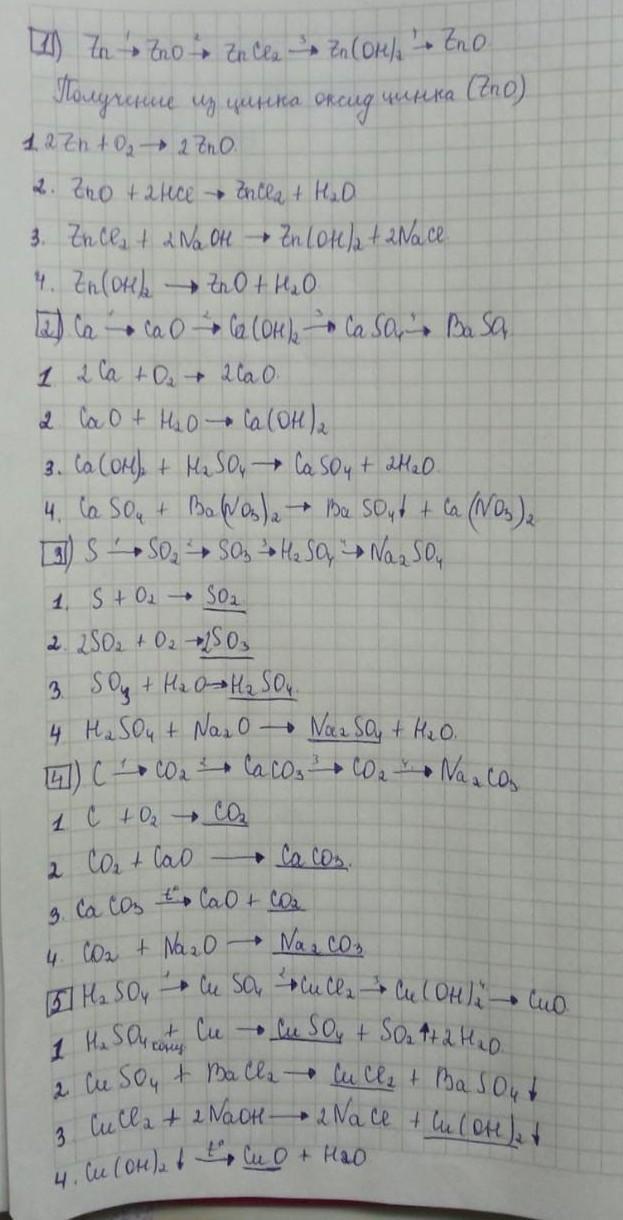 1) Zn →¹ ZnO →² ZnCl₂ →³ Zn(OH)₂ →¹ ZnO
Получение из цинка оксид цинка (ZnO)
1. 2Zn + O₂ → 2ZnO
2. ZnO + 2HCl → ZnCl₂ + H₂O
3. ZnCl₂ + 2NaOH → Zn(OH)₂ + 2NaCl
4. Zn(OH)₂ → ZnO + H₂O
2) Ca →¹ CaO →² Ca(OH)₂ →³ CaSO₄ →⁴ BaSO₄
1 2Ca + O₂ → 2CaO
2 CaO + H₂O → Ca(OH)₂
3. Ca(OH)₂ + H₂SO₄ → CaSO₄ + 2H₂O
4. CaSO₄ + Ba(NO₃)₂ → BaSO₄↓ + Ca(NO₃)₂
3) S →¹ SO₂ →² SO₃ →³ H₂SO₄ →⁴ Na₂SO₄
1. S + O₂ → SO₂
2. 2SO₂ + O₂ → 2SO₃
3 SO₃ + H₂O → H₂SO₄
4 H₂SO₄ + Na₂O → Na₂SO₄ + H₂O
4) C →¹ CO₂ →² CaCO₃ →³ CO₂ →⁴ Na₂CO₃
1 C + O₂ → CO₂
2 CO₂ + CaO → CaCO₃
3. CaCO₃ →t° CaO + CO₂
4. CO₂ + Na₂O → Na₂CO₃
5 H₂SO₄ →¹ CuSO₄ →² CuCl₂ →³ Cu(OH)₂ →⁴ CuO
1 H₂SO₄ конц + Cu → CuSO₄ + SO₂↑ + 2H₂O
2 CuSO₄ + BaCl₂ → CuCl₂ + BaSO₄↓
3 CuCl₂ + 2NaOH → 2NaCl + Cu(OH)₂↓
4. Cu(OH)₂↓ →t° CuO + H₂O